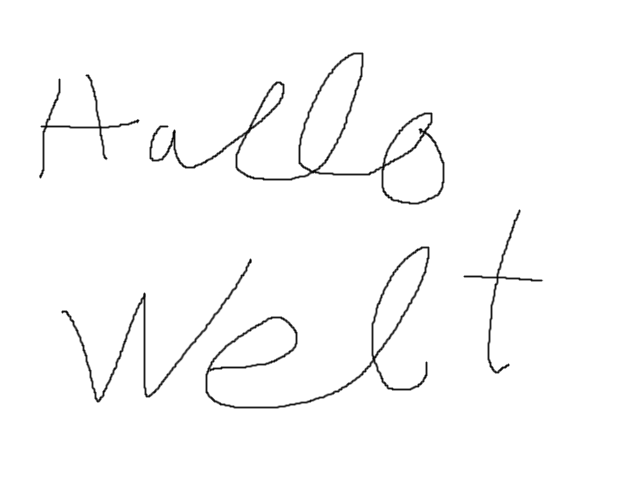 Hallo
Welt